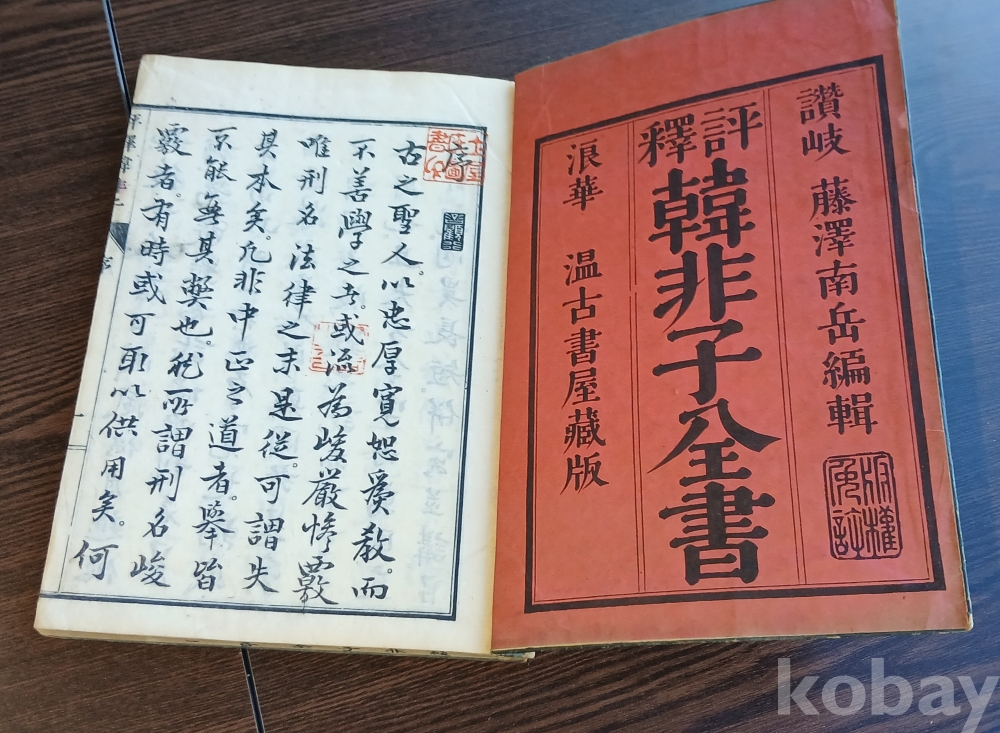 讚岐 藤澤南岳編輯
版權免許
評釋韓非子全書
浪華 温古書屋藏版
序
古之聖人。以忠厚寬恕爲教。而
不善學之者。或流為峻嚴慘覈
唯刑名法律之末是從。可謂失
其本矣。凡非中正之道者。擧皆
不能無其弊也。然所謂刑名峻
覈者。有時或可取以供用矣。何
kobay